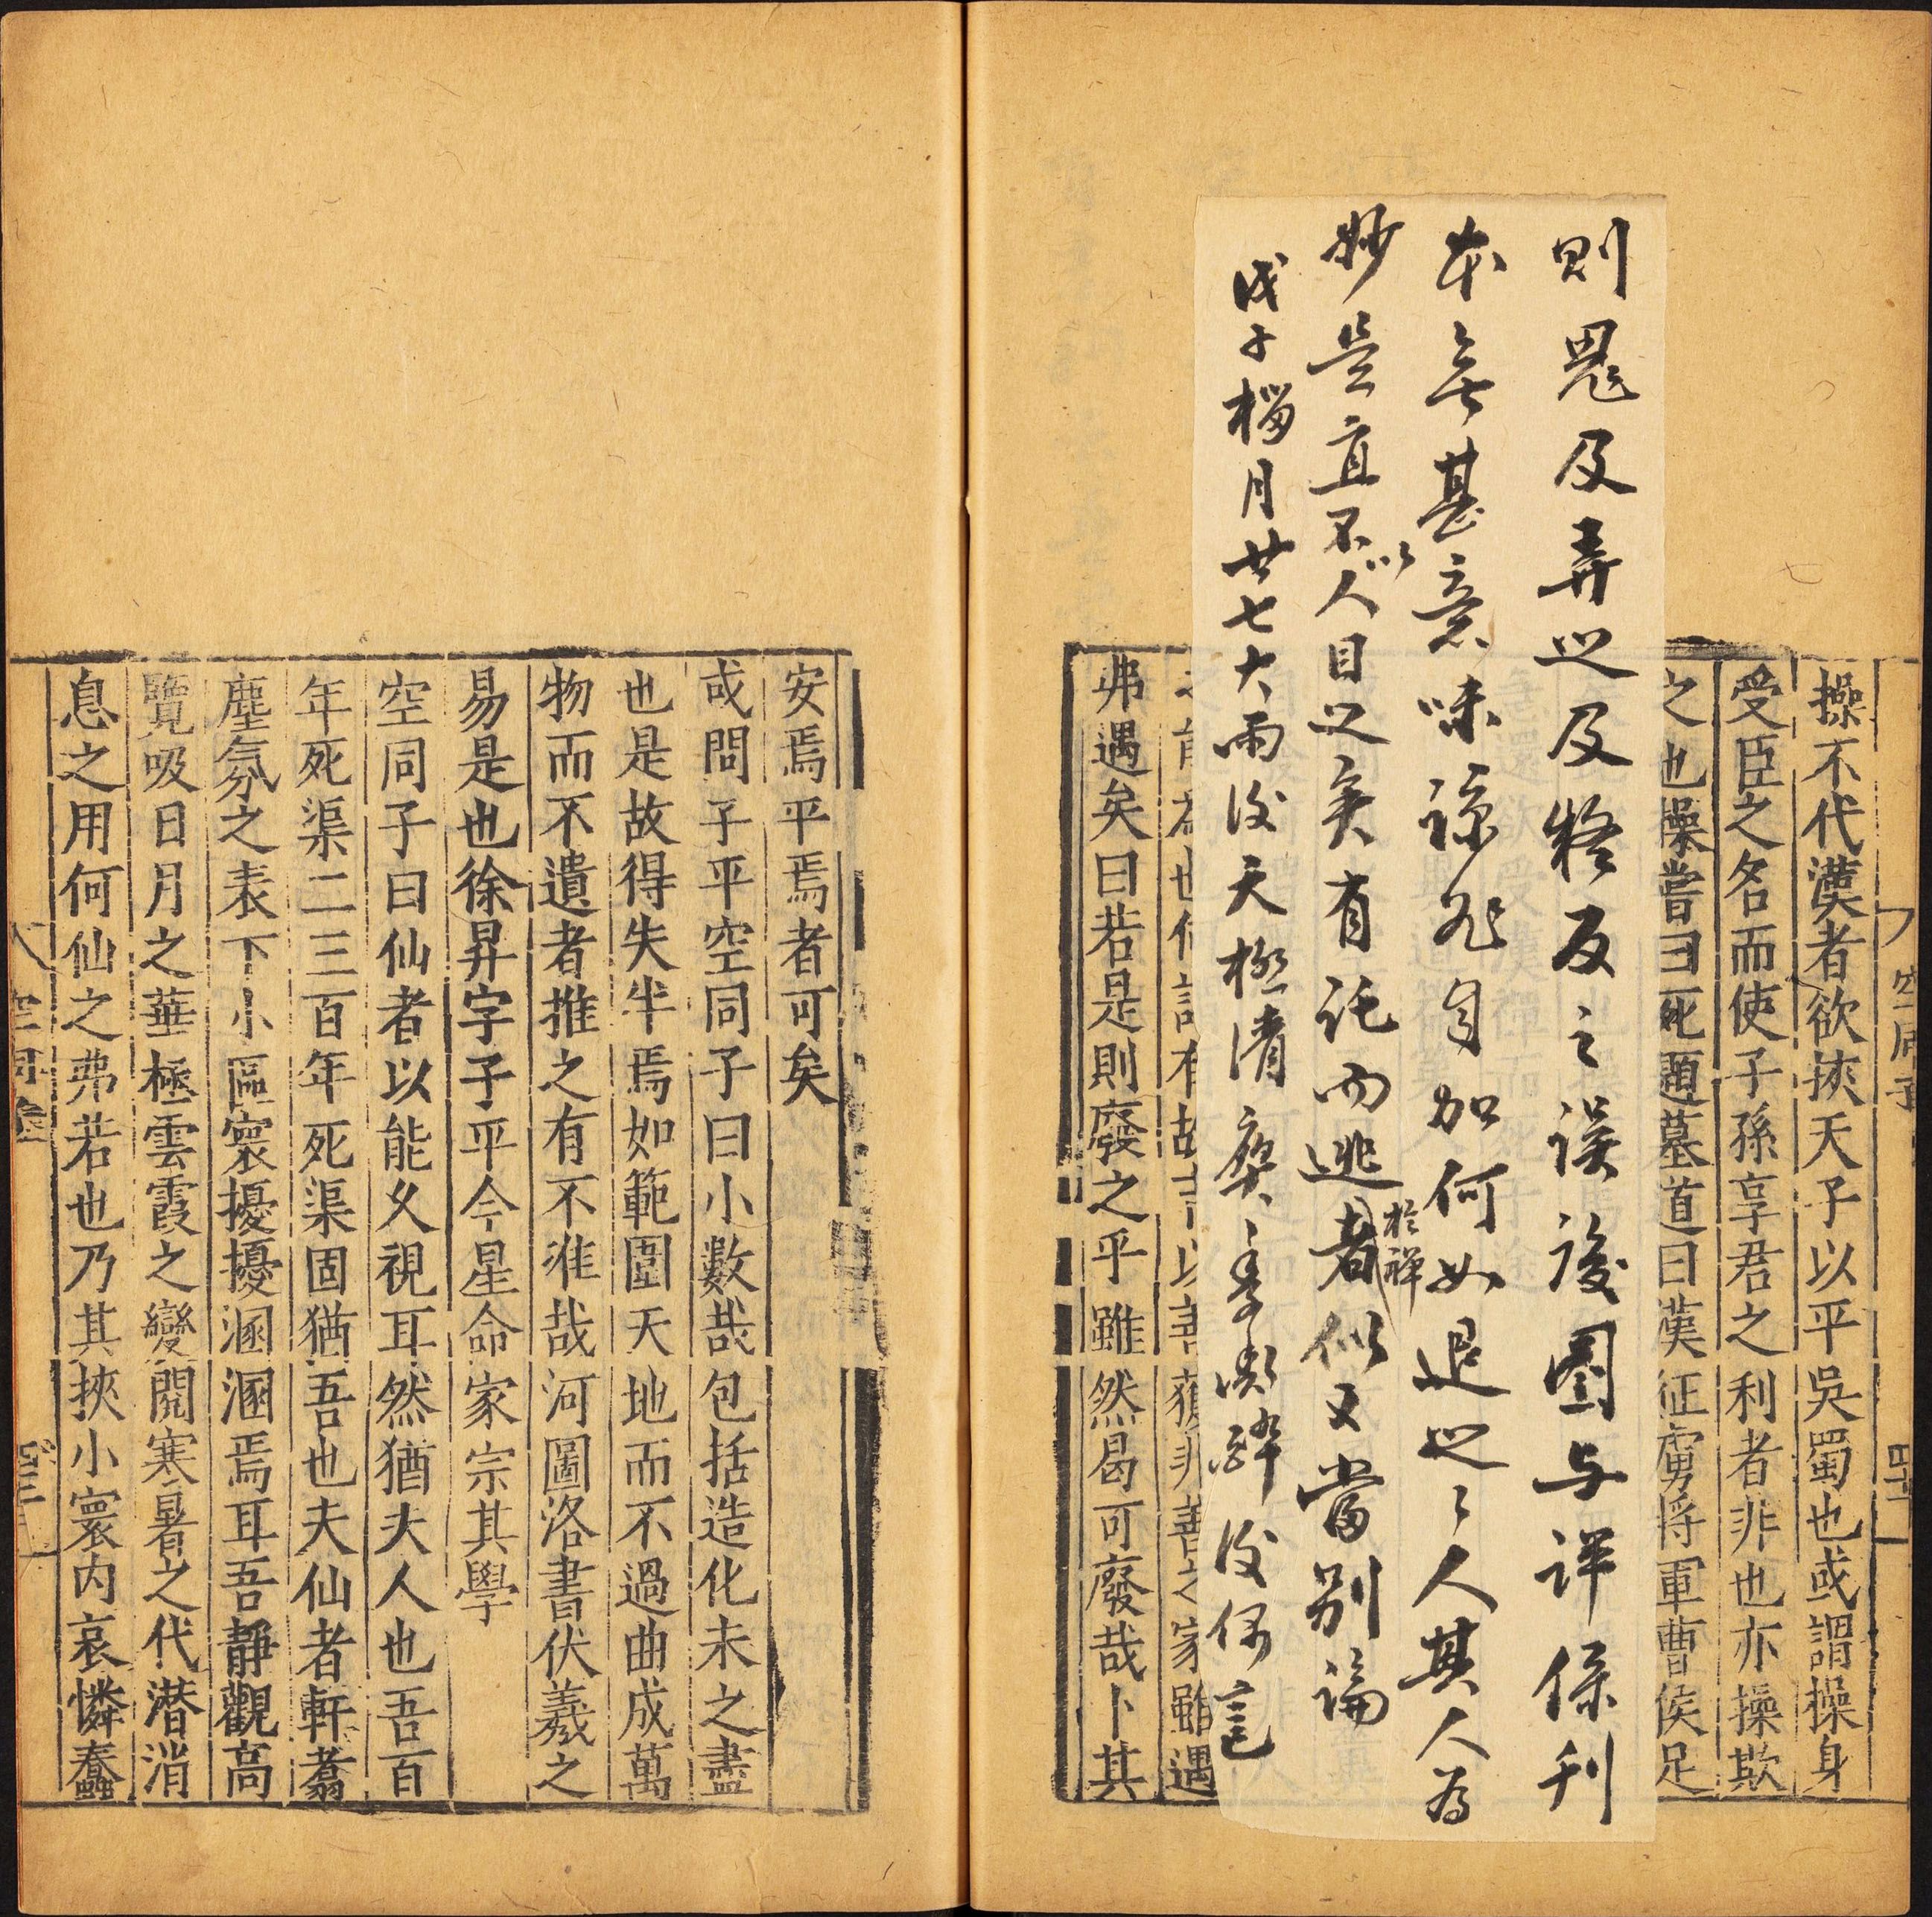 空同子
操不代漢者欲挾天子以平吳蜀也或謂操身
受臣之名而使子孫享君之利者非也亦操欺
之也操嘗曰死題墓道曰漢征虜將軍曹侯足
則鬼及弄之及
反之誤後圈与详係刊
本無甚意味諒非自加何如退之之人其人為
妙岂直不以人目之矣有託而逃於禅者似又當别論
戊子
月廿七大雨後天極清
後偶言
弗遇矣曰若是則廢之乎雖然曷可廢哉卜其
安焉平焉者可矣
或問子平空同子曰小數哉包括造化未之盡
也是故得失半焉如範圍天地而不過曲成萬
物而不遺者推之有不准哉河圖洛書伏羲之
易是也徐昇字子平今星命家宗其學
空同子曰仙者以能久視耳然猶夫人也吾百
年死渠二三百年死渠固猶吾也夫仙者軒翥
塵氛之表下小區寰擾擾溷溷焉耳吾靜觀高
覽吸日月之華極雲霞之變閱寒暑之代潜消
息之用何仙之弗若也乃其挾小寰内哀憐蠢